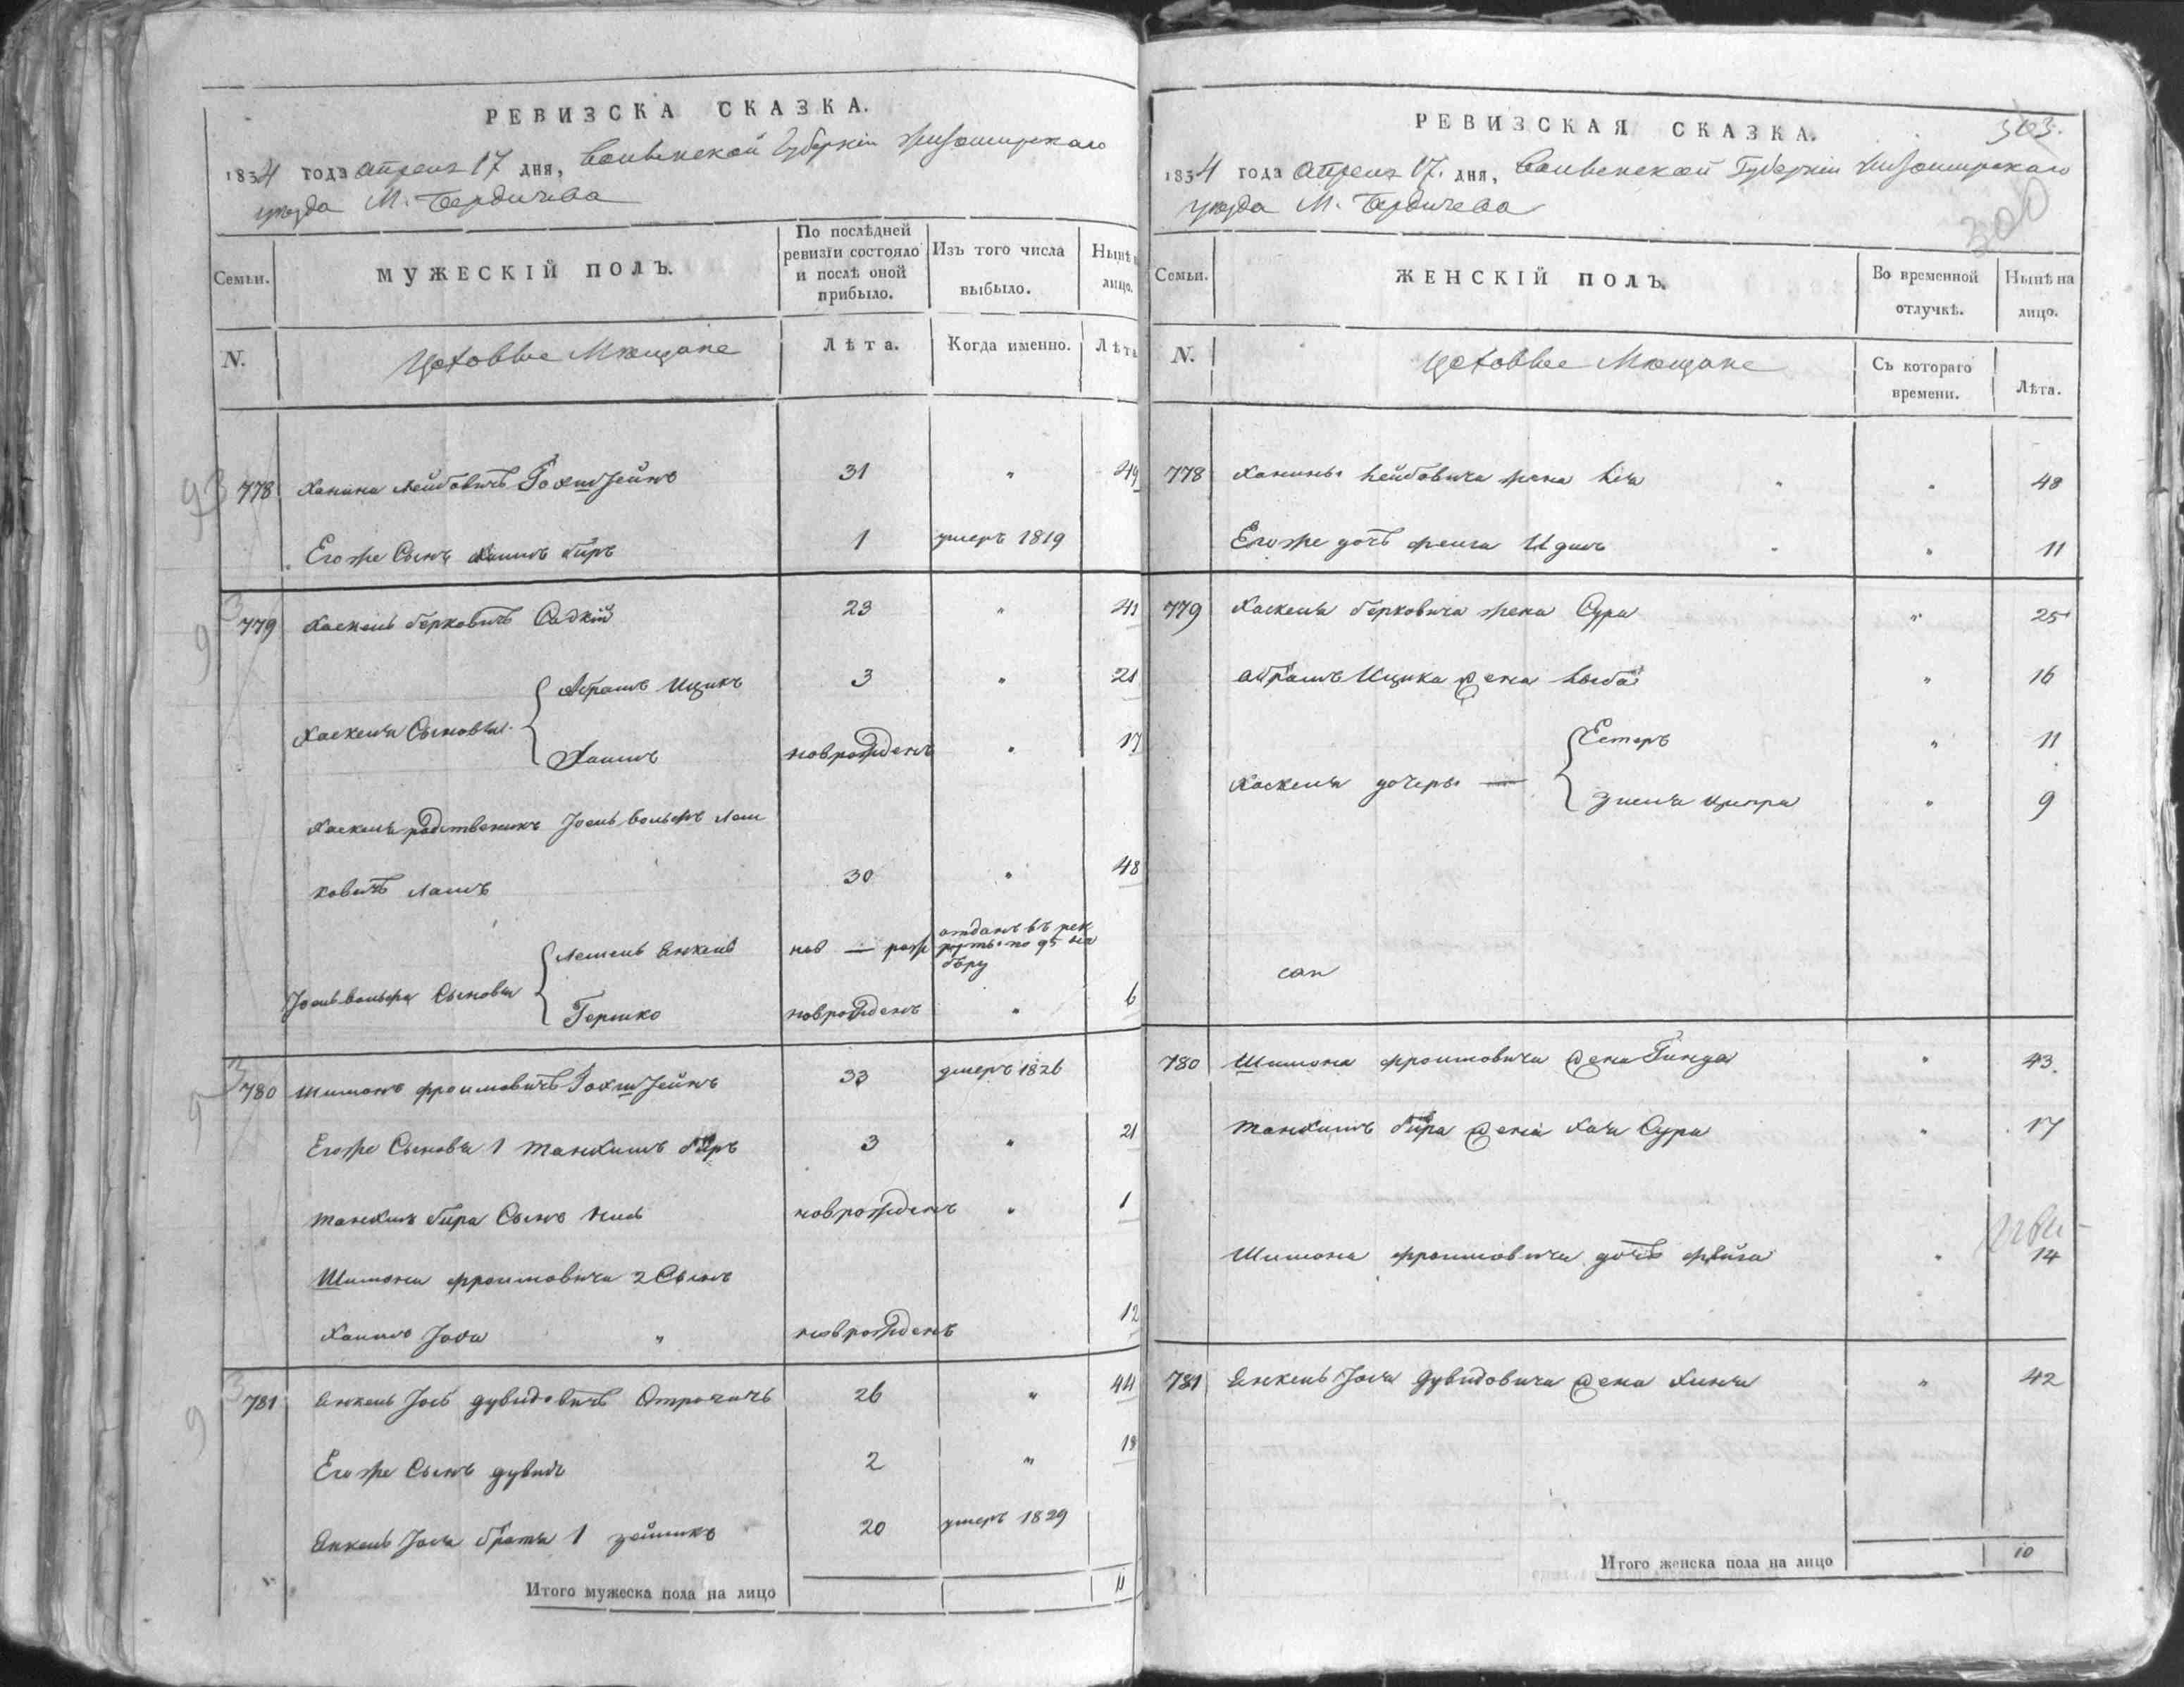 РЕВИЗСКА СКАЗКА.
1834 года апреля 17 дня, Волынской Губерніи Житомирскаго
уезда М. Бердичева
Семьи.
МУЖЕСКІЙ ПОЛЪ.
По послѣдней ревизіи состояло и послѣ оной прибыло.
Изъ того числа выбыло.
Нынѣ на лицо.
N.
Цеховые Мещане
Лѣта.
Когда именно.
Лѣта
778 Ханина Лейбовичъ Гохштейнъ 31 " 49
Егоже Сынъ Хаимъ Биръ 1 умеръ 1819
779 Хаскель Берковичъ Садкій 23 " 41
Абрамъ Ицикъ 3 " 21
Хаскеля Сыновья
Хаимъ новрожденъ " 17
Хаскеля родственикъ Іосль Вольфъ Лей
ковичъ 30 " 48
Лейзель Янкель нов — рож отданъ въ рек
руты по 95 на
бору
Іосль Вольфа Сыновья
Гершко новрожденъ " 6
780 Шимонъ Фроимовичъ Гохштейнъ 33 умеръ 1826
Егоже Сыновья 1 Танхимъ Биръ 3 " 21
Танхимъ Бира Сынъ новрожденъ " 1
Шимона Фроимовича 2 Сынъ
Хаимъ " новрожденъ 12
781 Янкель Іось Дувидовичъ 26 " 44
Егоже Сынъ Дувидъ 2 " 19
Янкель Іося братья 1 Зейликъ 20 умеръ 1829
Итого мужеска пола на лицо 11
РЕВИЗСКАЯ СКАЗКА.
363.
1834 года апреля 17. дня, Волынской Губерніи Житомирскаго
уезда М. Бердичева
300
Семьи.
ЖЕНСКІЙ ПОЛЪ.
Во временной отлучкѣ.
Нынѣ на лицо.
N.
Цеховые Мещане
Съ котораго времени.
Лѣта.
778 Ханины Лейбовича жена Лея " 48
Егоже дочь Фейга Идись " 11
779 Хаскеля Берковича жена Сура " 25
Абрамъ Ицика жена Лыба " 16
Естеръ " 11
Хаскеля дочеры —
Зисля Ципра " 9
780 Шимона Фроимовича жена Гинда " 43.
Танхимъ Бира жена Хая Сура " 17
Шимона Фроимовича дочь Фейга " 14
781 Янкель Іося Дувидовича жена Хиня " 42
Итого женска пола на лицо 10